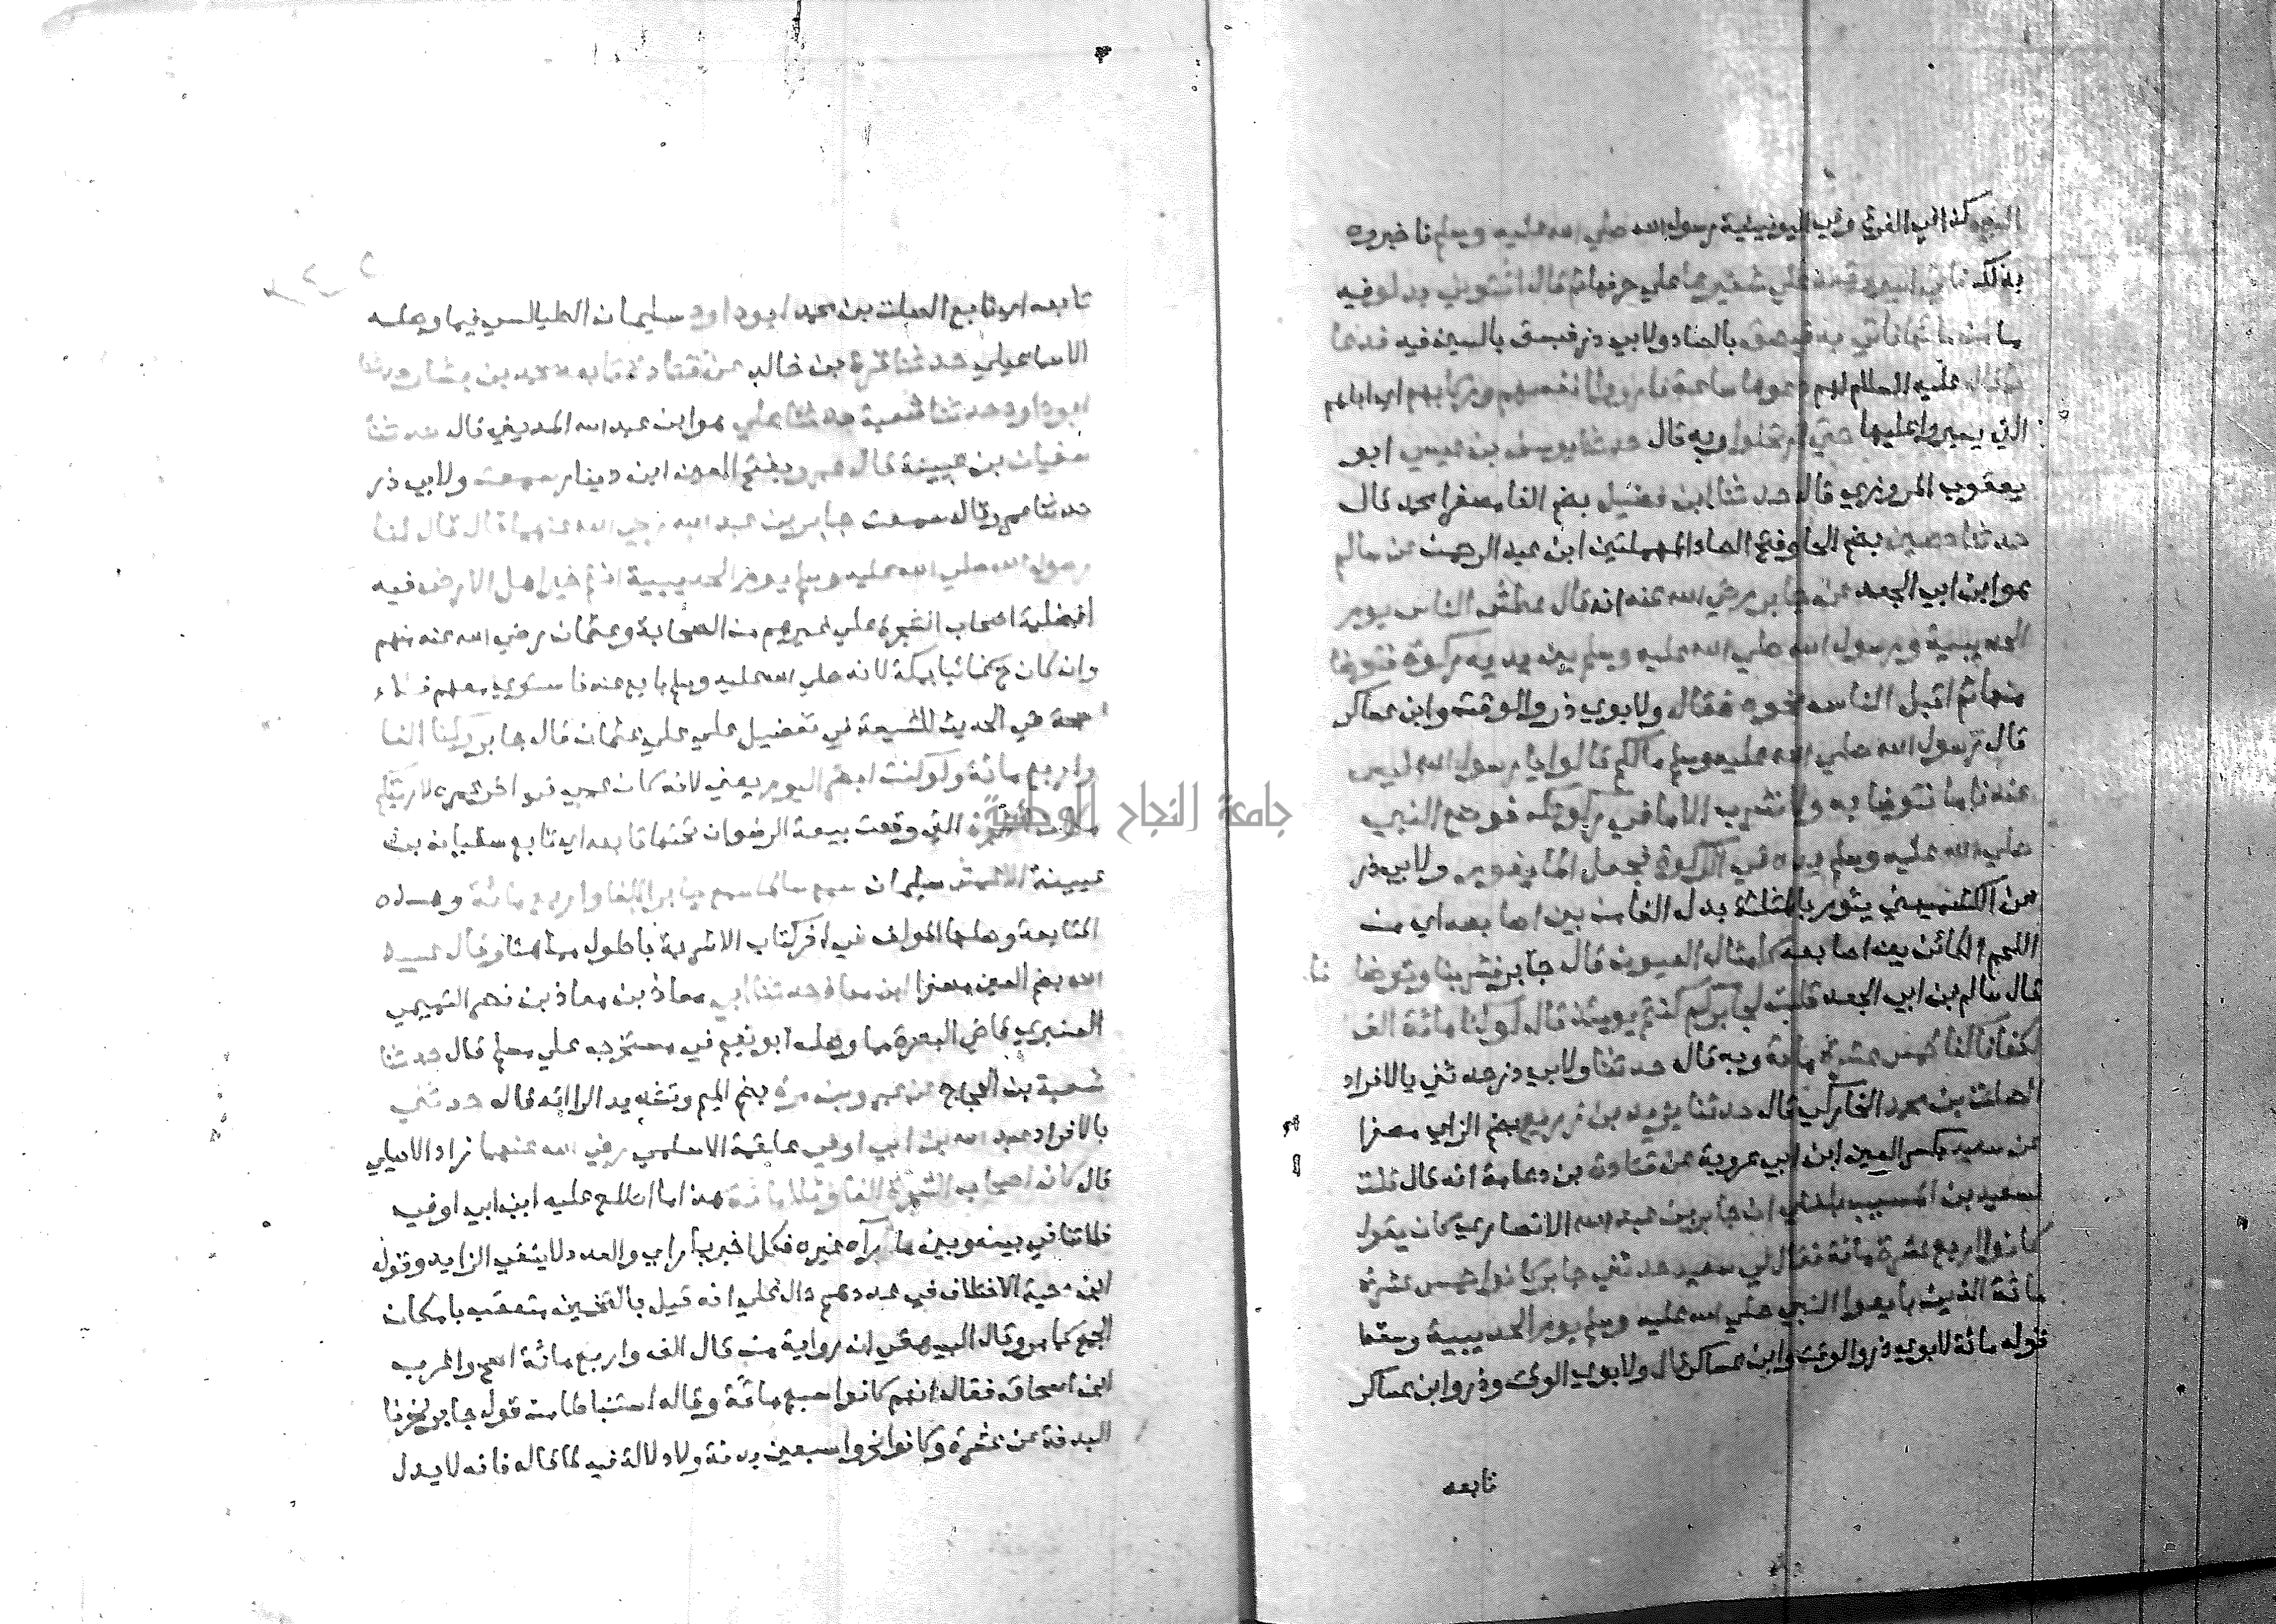 البير كذا في الفرع وفي اليونينية رسول الله صلي الله عليه وسلم فاخبروه
بذلك فاتي البير وقعد علي شفيرها علي حرفها ثم قال ائتوني بدلو فيه
ما من مائها فاتي به فبصق بالصاد ولابي ذر فبسق بالسين فيه فدعا
ثم قال عليه السلام لهم دعوها ساعة فارووا انفسهم وركابهم اي ابلهم
التي يسيروا عليها حتي ارتحلوا وبه قال حدثنا يوسف بن عيسي ابو
يعقوب المروزي قال حدثنا ابن فضيل بضم الفا مصغرا محمد قال
حدثنا حصين بضم الحا وفتح الصاد المهملتين ابن عبد الرحمن عن سالم
هو ابن ابي الجعد عن جابر رضي الله عنه انه قال عطش الناس يوم
الحديبية ورسول الله صلي الله عليه وسلم بين يديه ركوة فتوضا
منها ثم اقبل الناس نحوه فقال ولابوي ذر والوقت وابن عساكر
قال رسول الله صلي الله عليه وسلم مالكم قالوا يا رسول الله ليس
عندنا ما نتوضا به ولا نشرب الا ما في ركوتك فوضع النبي
صلي الله عليه وسلم يده في الركوة فجعل الما يفور ولابي ذر
عن الكشميهني يثور بالمثلثة بدل الفا من بين اصابعه اي من
اللحم الكائن بين اصابعه كامثال العيون قال جابر فشربنا وتوضا نا
قال سالم بن ابي الجعد قلت لجابر كم كنتم يومئذ قال لو كنا مائة الف
لكفانا كنا خمس عشرة مائة وبه قال حدثنا ولابي ذر حدثني بالافراد
الصلت بن محمد الخاركي قال حدثنا يزيد بن زريع بضم الزاي مصغرا
عن سعيد بكسر العين ابن ابي عروبة عن قتادة بن دعامة انه قال قلت
لسعيد بن المسيب بلغني ان جابر بن عبد الله الانصاري كان يقول
كانوا اربع عشرة مائة فقال لي سعيد حدثني جابر كانوا خمس عشرة
مائة الذين بايعوا النبي صلي الله عليه وسلم يوم الحديبية وسقط
قوله مائة لابوي ذر والوقت وابن عساكر قال ولابوي الوقت وذر وابن عساكر
تابعه
تابعه اي تابع الصلت بن محمد ابو داود سليمان الطيالسي فيما وصله
الاسماعيلي حدثنا قرة بن خالد عن قتادة تابعه محمد بن بشار حدثنا
ابو داود حدثنا شعبة حدثنا علي هو ابن عبد الله المديني قال حدثنا
سفيان بن عيينة قال عمرو بفتح العين ابن دينار سمعت ولابي ذر
حدثنا عمرو قال سمعت جابر بن عبد الله رضي الله عنهما قال قال لنا
رسول الله صلي الله عليه وسلم يوم الحديبية انتم خير اهل الارض فيه
افضلية اصحاب الشجرة علي غيرهم من الصحابة وعثمان رضي الله عنه منهم
وان كان ح غائبا بمكة لانه صلي الله عليه وسلم بايع عنه فاستوي معهم فلا
حجة في الحديث للشيعة في تفضيل علي علي عثمان قال جابر وكنا الفا
واربع مائة ولو كنت ابصر اليوم يعني لانه كان عمي في اخر عمره لاريتكم
مكان الشجرة التي وقعت بيعة الرضوان تحتها تابعه اي تابع سفيان بن
عيينة الاعمش سليمان سمع سالما سمع جابرا الفا واربع مائة وهذه
المتابعة وصلها المولف في اخر كتاب الاشربة باطول مما هنا وقال عبيد
الله بضم العين مصغرا ابن معاذ حدثنا ابي معاذ بن معاذ بن نصر التميمي
العنبري قاضي البصرة مما وصله ابو نعيم في مستخرجه علي مسلم قال حدثنا
شعبة بن الحجاج عن عمرو بن مرة بضم الميم وتشديد الرا انه قال حدثني
بالافراد عبد الله بن ابي اوفي علقمة الاسلمي رضي الله عنهما زاد الاصيلي
قال كان اصحاب الشجرة الفا وثلثمائة هذا ما اطلع عليه ابن ابي اوفي
فلا تنافي بينه وبين ما رآه غيره فكل اخبر بما راي والعدد لا ينفي الزايد وقول
ابن دحية الاختلاف في عددهم دال علي انه قيل بالتخمين متعقب بامكان
الجمع كما مر وقال البيهقي ان رواية من قال الف واربع مائة اصح واغرب
ابن اسحاق فقال انهم كانوا سبع مائة وقاله استنباطا من قول جابر نحرنا
البدنة عن عشرة وكانوا نحروا سبعين بدنة ولا دلالة فيه لما قاله فانه لا يدل
جامعة النجاح الوطنية